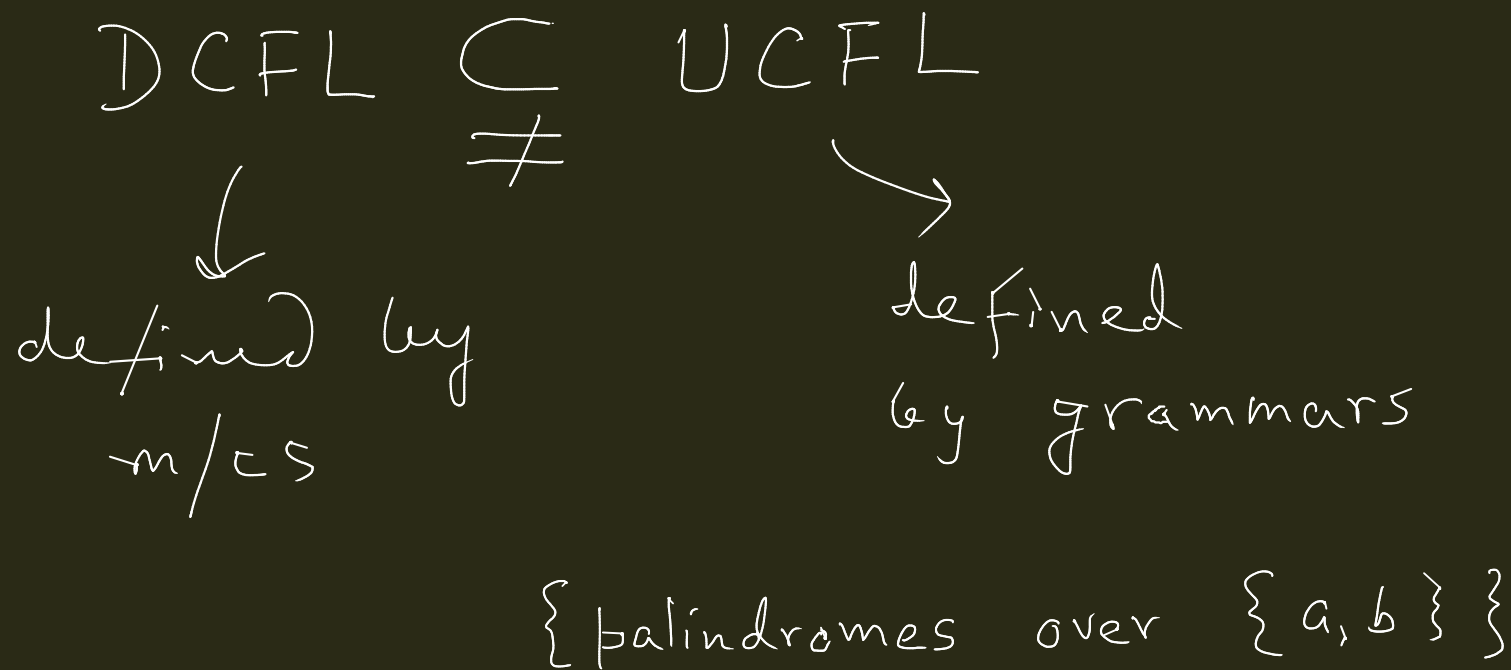 DCFL ⊊ UCFL
defined by
m/cs
defined
by grammars
{palindromes over {a,b}}